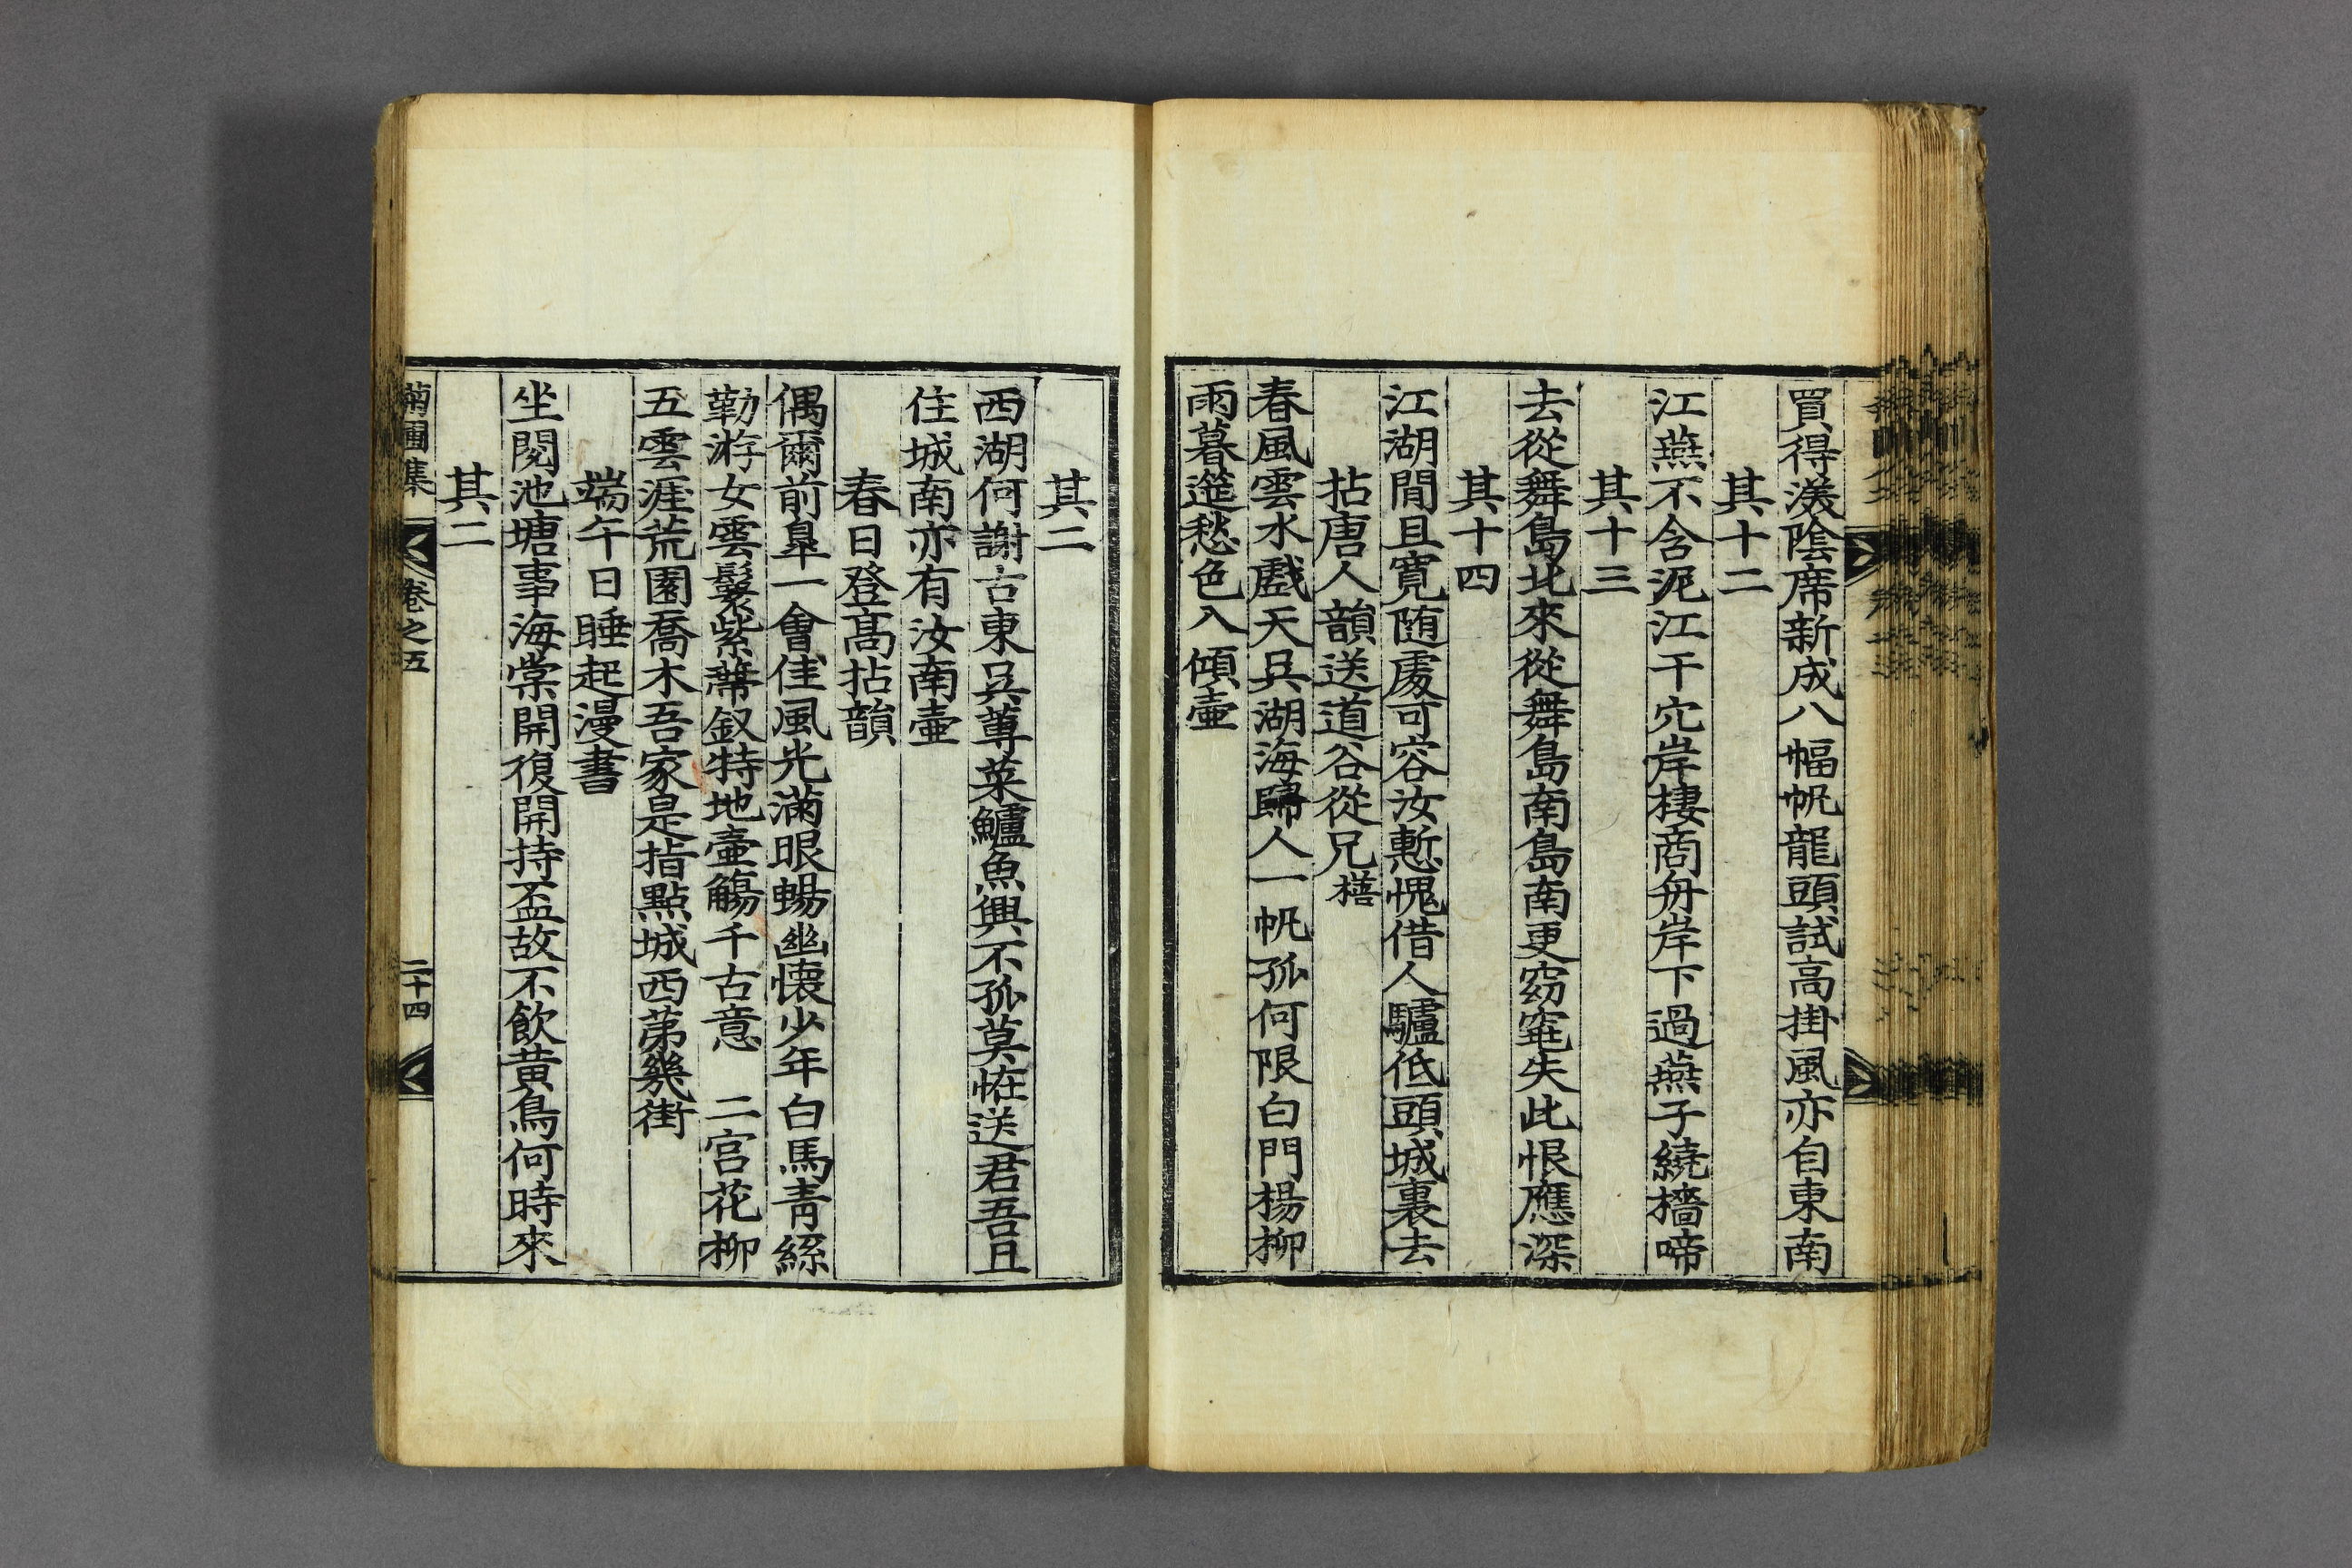 買得渼陰席新成八幅帆龍頭試高掛風亦自東南
其十二
江燕不含泥江干穴岸棲商舟岸下過燕子繞檣啼
其十三
去從舞島北來從舞島南島南更窈窕失此恨應深
其十四
江湖閒且寬随處可容汝慙愧借人驢低頭城裏去
拈唐人韻送道谷從兄橏
春風雲水戲天兵湖海歸人一帆孤何限白門楊柳
雨暮筵愁色入傾壷
其二
西湖何謝古東吳蓴菜鱸魚興不孤莫恠送君吾且
住城南亦有汝南壷
春日登髙拈韻
偶爾前臯一會佳風光滿眼暢幽懷少年白馬靑絲
勒游女雲鬟紫幣釵特地壷觴千古意 二宫花柳
五雲涯荒園喬木吾家是指點城西第幾街
端午日睡起漫書
坐閱池塘事海棠開復開持盃故不飮黄鳥何時來
其二
菊圃集 卷之五 二十四